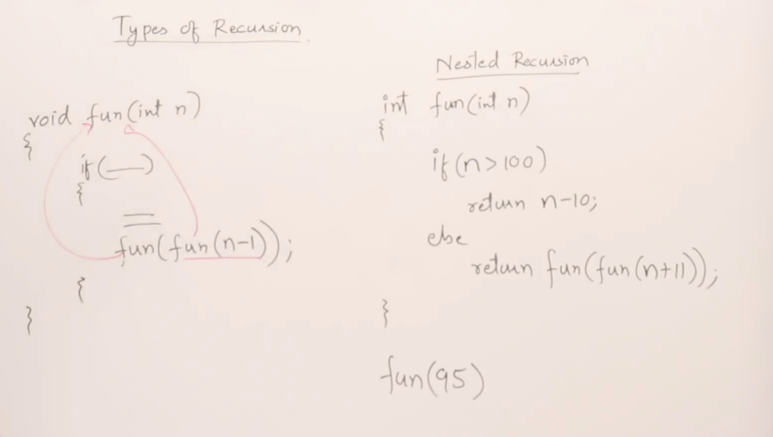 Types of Recursion.
void fun(int n)
{
if(—)
{
fun(fun(n-1));
{
}
Nested Recursion
int fun(int n)
{
if(n>100)
return n-10;
else
return fun(fun(n+11));
}
fun(95)